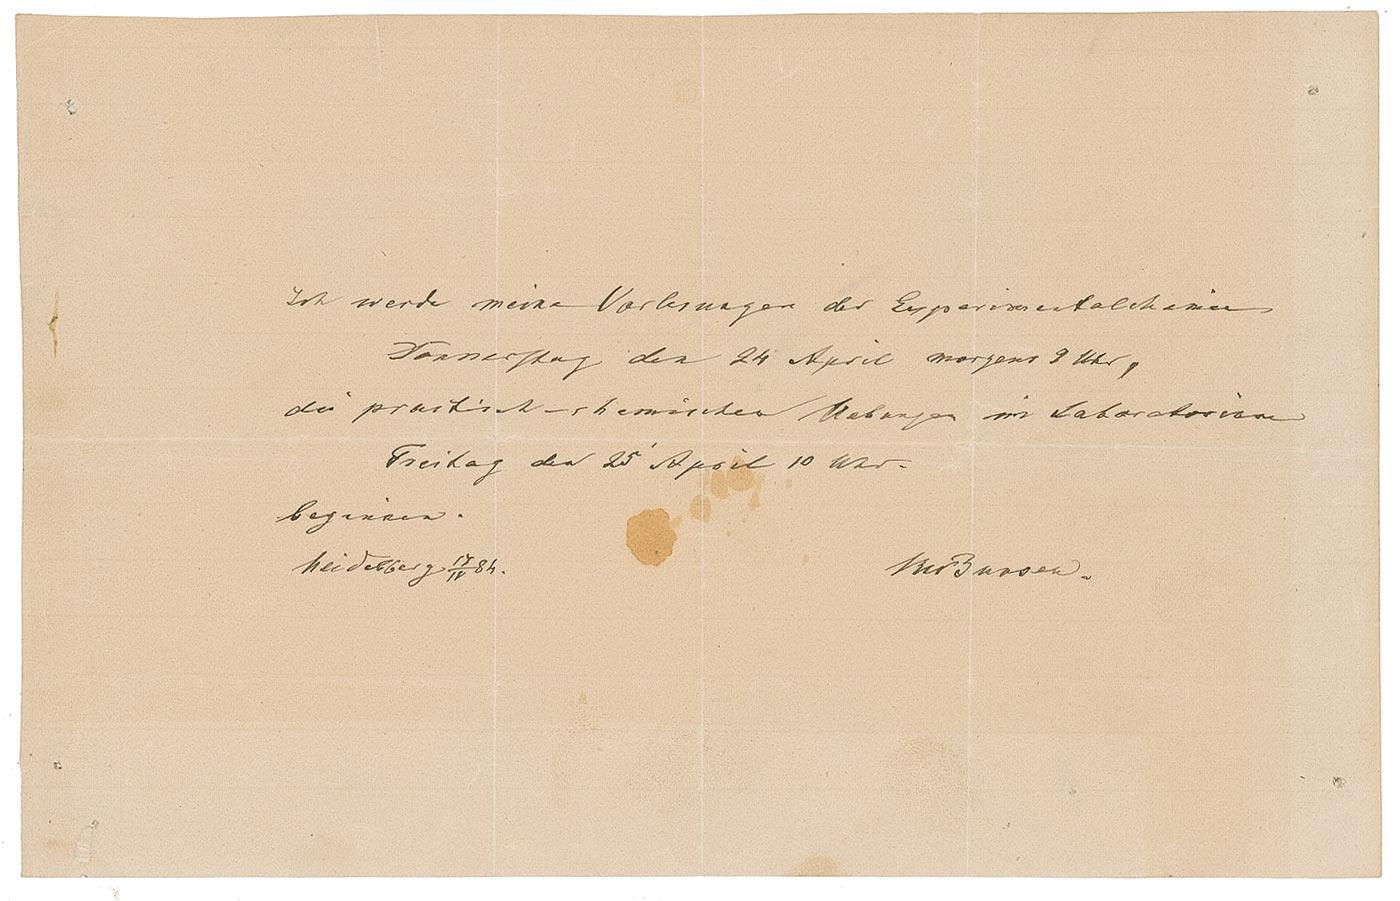 Ich werde meine Vorlesungen der Experimentalchemie
Donnerstag den 24 April morgens 9 Uhr,
die practisch-chemischen Uebungen im Laboratorium
Freitag den 25 April 10 Uhr.
beginnen.
Heidelberg 17/IV 84.
RWBunsen.